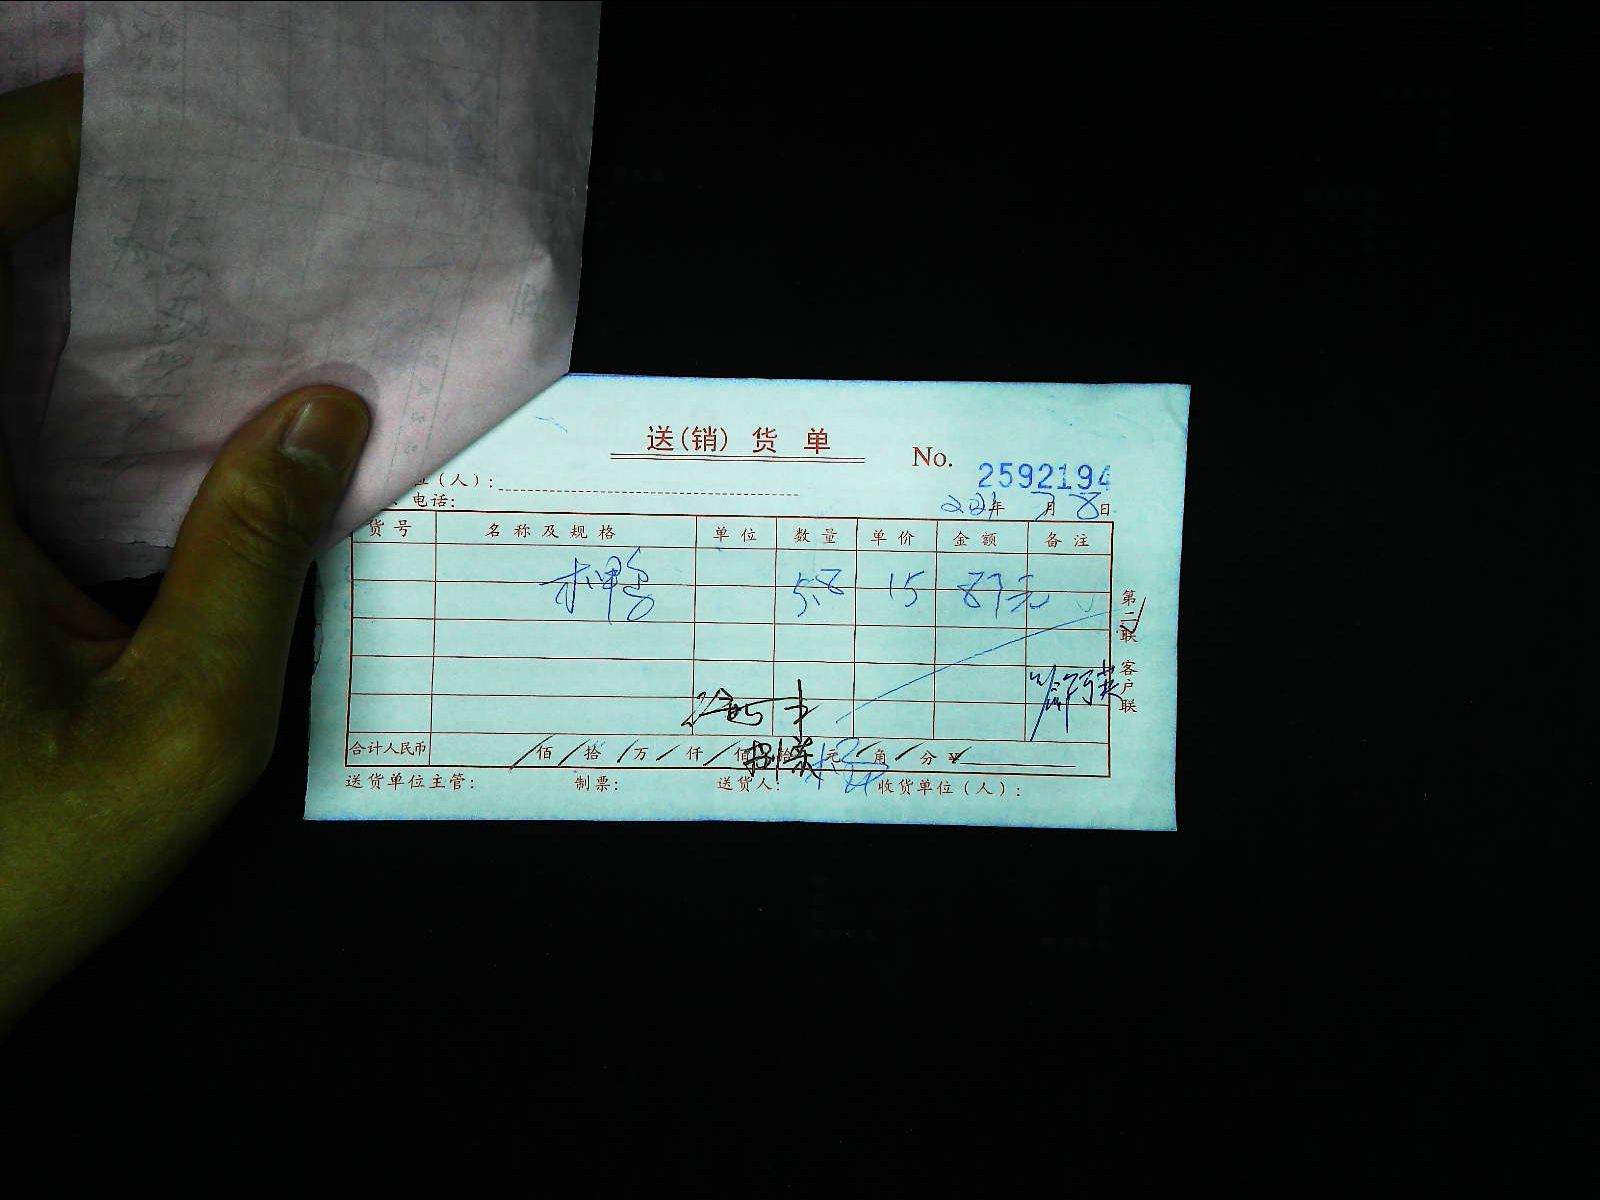 送(销)货单
No. 2592194
(人):
电话:
年 7月8日
货号 名称及规格 单位 数量 单价 金额 备注
鸭 5.8 15 87元
合计人民币 佰 拾 万 仟 佰 拾 元 角 分 ¥
送货单位主管: 制票: 送货人: 收货单位(人):
第二联 客户联